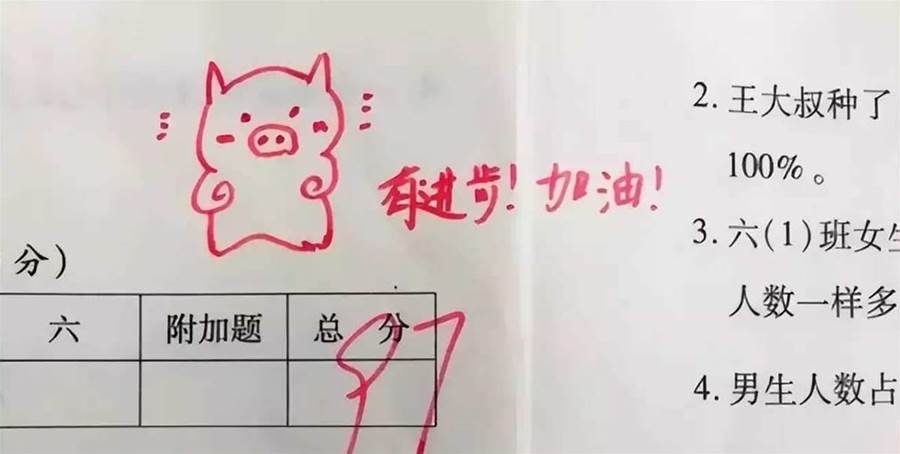 有进步！加油！
分）
六 附加题 总 分
2. 王大叔种了
100%。
3. 六(1)班女
人数一样多
4. 男生人数占